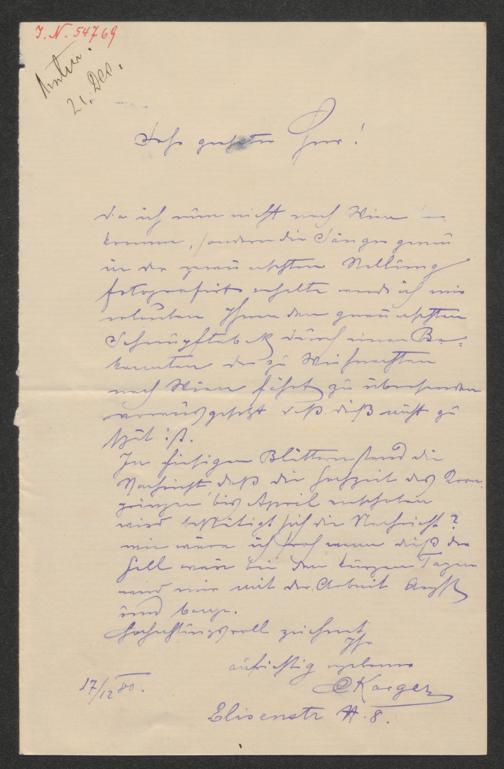 J. N. 54769
21. Dec.
Sehr geehrter Herr!
da ich nun nicht nach Wien
komme, sondern die Sänger genau
in der gewünschten Stellung
fotografirt erhalte werde ich mir
erlauben Ihnen den gewünschten
Schnupftabak durch einen Be-
kannten der zu Weihnachten
nach Wien fährt zu übersenden
vorausgesetzt daß dieß nicht zu
spät ist.
In hiesigen Blättern stand die
Nachricht daß die Hochzeit des Kron
prinzen bis April verschoben
wird bestätigt sich die Nachricht?
mir wäre ich froh wenn dieß der
Fall wäre bei den kurzen Tagen
wird mir mit der Arbeit Angst
und bange.
Hochachtungsvoll zeichnet
Ihr
aufrichtig ergebener
CKarger
17/12 80.
Elisenstr A. 8.